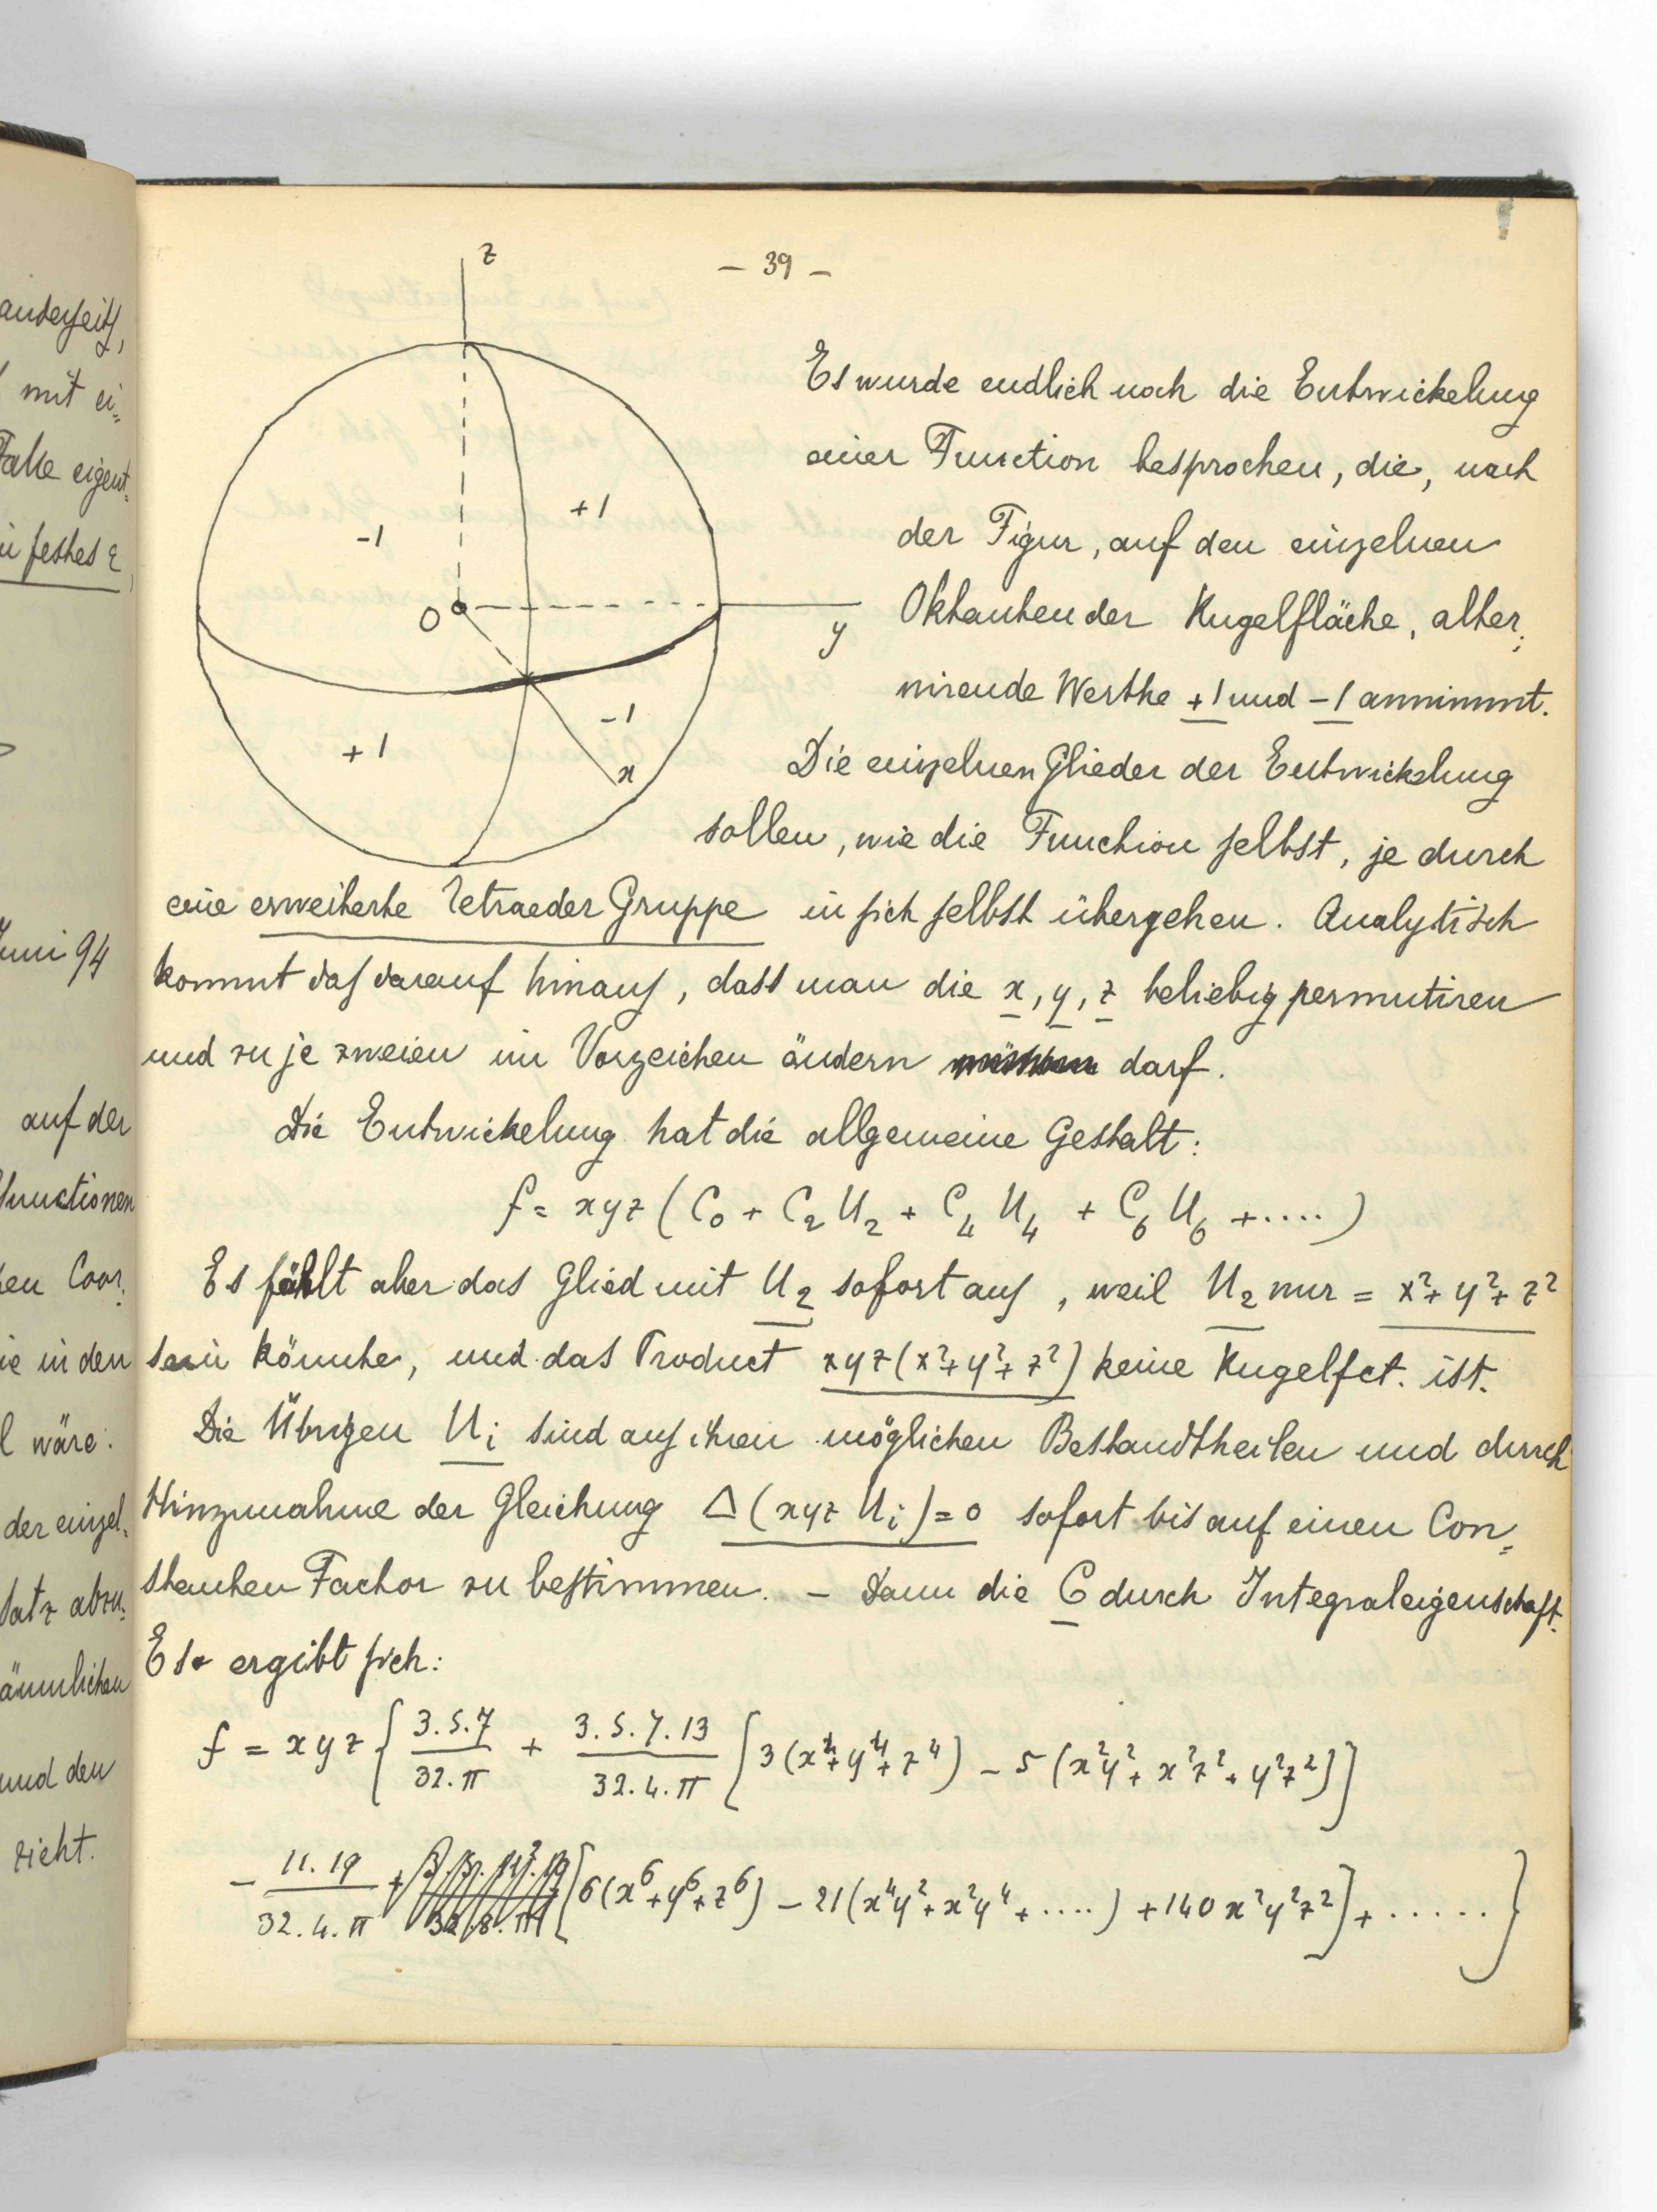 anderseits,
mit ei=
Falle eigent=
festes
Juni 94
auf der
functionen
Coor=
in den
wäre.
der einzel=
satz abzu=
und den
zieht.
- 39 -
z
-1
+1
O
y
+1
-1
x
Es wurde endlich noch die Entwickelung
einer Function besprochen, die, nach
der Figur, auf den einzelnen
Oktanten der Kugelfläche, alter=
nirende Werthe +1 und -1 annimmt.
Die einzelnen Glieder der Entwickelung
sollen, wie die Function selbst, je durch
eine erweiterte Tetraeder Gruppe in sich selbst übergehen. Analytisch
kommt das darauf hinaus, dass man die x, y, z beliebig permutiren
und zu je zweien im Vorzeichen ändern darf.
Die Entwickelung hat die allgemeine Gestalt:
f = xyz (C₀ + C₂ U₂ + C₄ U₄ + C₆ U₆ + ....)
Es fällt aber das Glied mit U₂ sofort aus, weil U₂ nur = x² + y² + z²
sein könnte, und das Product xyz(x² + y² + z²) keine Kugelfct. ist.
Die Übrigen Uᵢ sind aus ihren möglichen Bestandtheilen und durch
Hinzunahme der Gleichung Δ(xyz Uᵢ) = 0 sofort bis auf einen Con=
stanten Factor zu bestimmen. - Dann die C durch Integraleigenschaft.
Es ergibt sich:
f = xyz { 3.5.7 / 32.π + 3.5.7.13 / 32.4.π [3(x⁴ + y⁴ + z⁴) - 5(x²y² + x²z² + y²z²)]
- 11.19 / 32.4.π [6(x⁶ + y⁶ + z⁶) - 21(x⁴y² + x²y⁴ + ....) + 140 x²y²z²] + ..... }